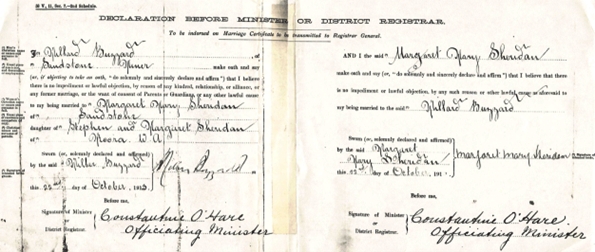 DECLARATION BEFORE MINISTER OR DISTRICT REGISTRAR.
To be indorsed on Marriage Certificate to be transmitted to Registrar General.
Willard Buzzard, of
Sandstone Miner make oath and say
(or, if objecting to take an oath, "do solemnly and sincerely declare and affirm") that I believe
there is no impediment or lawful objection, by reason of any kindred, relationship, or alliance, or
any former marriage, or the want of consent of Parents or Guardians, or any other lawful cause
to my being married to Margaret Mary Sheridan
of Sandstone
daughter of Stephen and Margaret Sheridan
of Noora W A
Sworn (or, solemnly declared and affirmed)
by the said Buzzard
this 22nd day of October, 191
Before me,
Signature of Minister or District Registrar.
Constantine O'Hare
Officiating Minister
AND I the said Margaret Mary Sheridan
make oath and say (or, "do solemnly and sincerely declare and affirm") that I believe that there
is no impediment or lawful objection, by any such reason or other lawful cause as aforesaid to
my being married to the said Willard Buzzard
Sworn (or, solemnly declared and affirmed)
by the said Margaret
Mary Sheridan
Margaret Mary Sheridan
this day of October, 191
Before me,
Signature of Minister or District Registrar.
Constantine O'Hare.
Officiating Minister